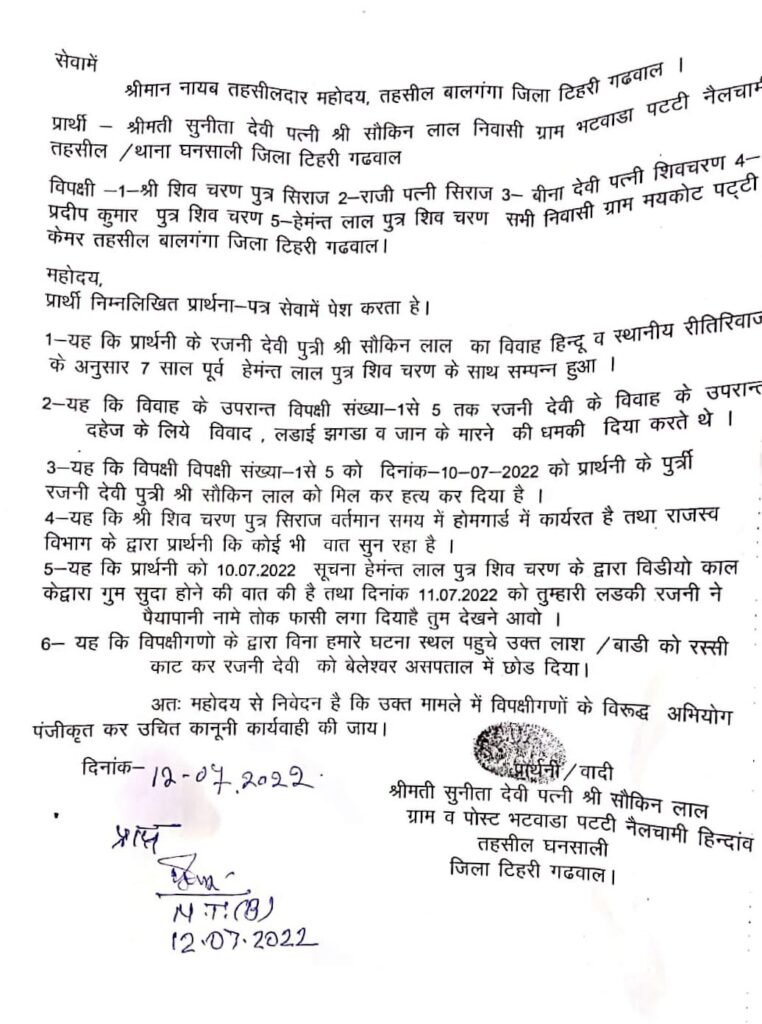 सेवामें
श्रीमान नायब तहसीलदार महोदय, तहसील बालगंगा जिला टिहरी गढवाल ।
प्रार्थी – श्रीमती सुनीता देवी पत्नी श्री सौकिन लाल निवासी ग्राम भटवाडा पटटी नैलचामी
तहसील /थाना घनसाली जिला टिहरी गढवाल
विपक्षी –1–श्री शिव चरण पुत्र सिराज 2–राजी पत्नी सिराज 3– बीना देवी पत्नी शिवचरण 4–
प्रदीप कुमार पुत्र शिव चरण 5–हेमंन्त लाल पुत्र शिव चरण सभी निवासी ग्राम मयकोट पट्टी
केमर तहसील बालगंगा जिला टिहरी गढवाल।
महोदय,
प्रार्थी निम्नलिखित प्रार्थना–पत्र सेवामें पेश करता हे।
1–यह कि प्रार्थनी के रजनी देवी पुत्री श्री सौकिन लाल का विवाह हिन्दू व स्थानीय रीतिरिवाज
के अनुसार 7 साल पूर्व हेमंन्त लाल पुत्र शिव चरण के साथ सम्पन्न हुआ ।
2–यह कि विवाह के उपरान्त विपक्षी संख्या–1से 5 तक रजनी देवी के विवाह के उपरान्त
दहेज के लिये विवाद , लडाई झगडा व जान के मारने की धमकी दिया करते थे ।
3–यह कि विपक्षी विपक्षी संख्या–1से 5 को दिनांक–10–07–2022 को प्रार्थनी के पुर्त्री
रजनी देवी पुत्री श्री सौकिन लाल को मिल कर हत्य कर दिया है ।
4–यह कि श्री शिव चरण पुत्र सिराज वर्तमान समय में होमगार्ड में कार्यरत है तथा राजस्व
विभाग के द्वारा प्रार्थनी कि कोई भी वात सुन रहा है ।
5–यह कि प्रार्थनी को 10.07.2022 सूचना हेमंन्त लाल पुत्र शिव चरण के द्वारा विडीयो काल
केद्वारा गुम सुदा होने की वात की है तथा दिनांक 11.07.2022 को तुम्हारी लडकी रजनी ने
पैयापानी नामे तोक फासी लगा दियाहै तुम देखने आवो ।
6– यह कि विपक्षीगणो के द्वारा विना हमारे घटना स्थल पहुचे उक्त लाश /बाडी को रस्सी
काट कर रजनी देवी को बेलेश्वर असपताल में छोड दिया।
अतः महोदय से निवेदन है कि उक्त मामले में विपक्षीगणों के विरूद्ध अभियोग
पंजीकृत कर उचित कानूनी कार्यवाही की जाय।
दिनांक– 12-07.2022.
प्रार्थनी/वादी
श्रीमती सुनीता देवी पत्नी श्री सौकिन लाल
ग्राम व पोस्ट भटवाडा पटटी नैलचामी हिन्दांव
तहसील घनसाली
जिला टिहरी गढवाल।
N.T.(B)
12.07.2022